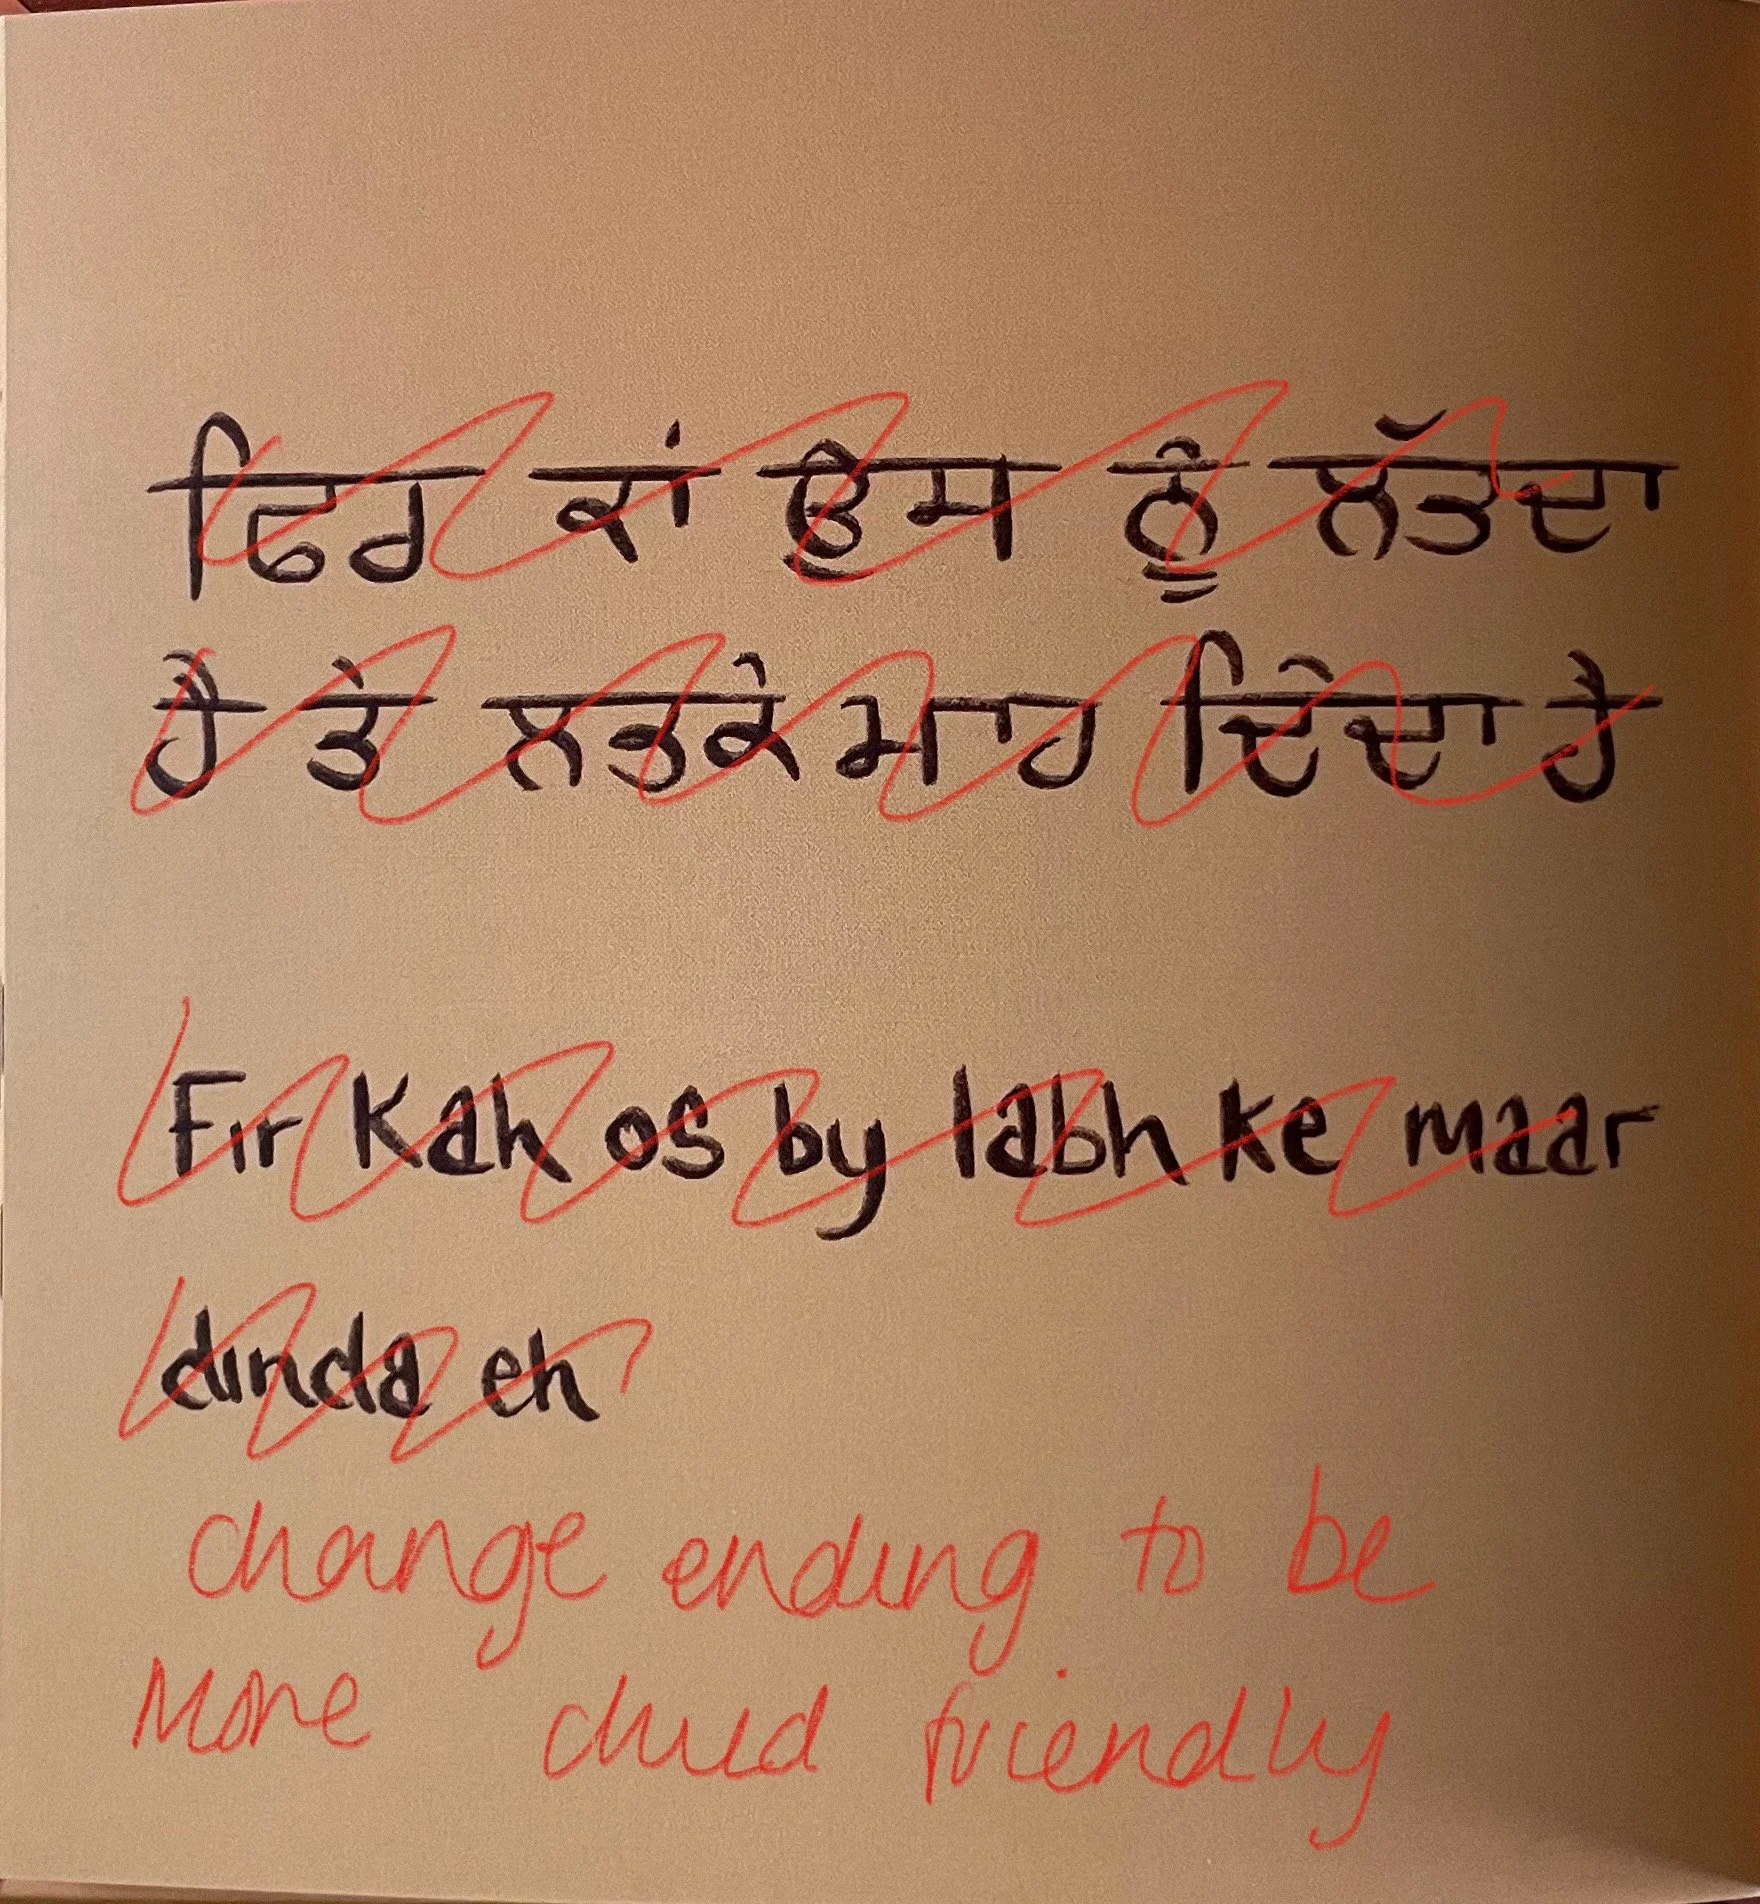 ਫਿਰ ਕਾਂ ਉਸ ਨੂੰ ਲੱਤਦਾ
ਹੈ ਤੇ ਲਤਕੇ ਮਾਰ ਦਿੰਦਾ ਹੈ
Fir Kah os by labh ke maar
dinda eh
change ending to be
more child friendly